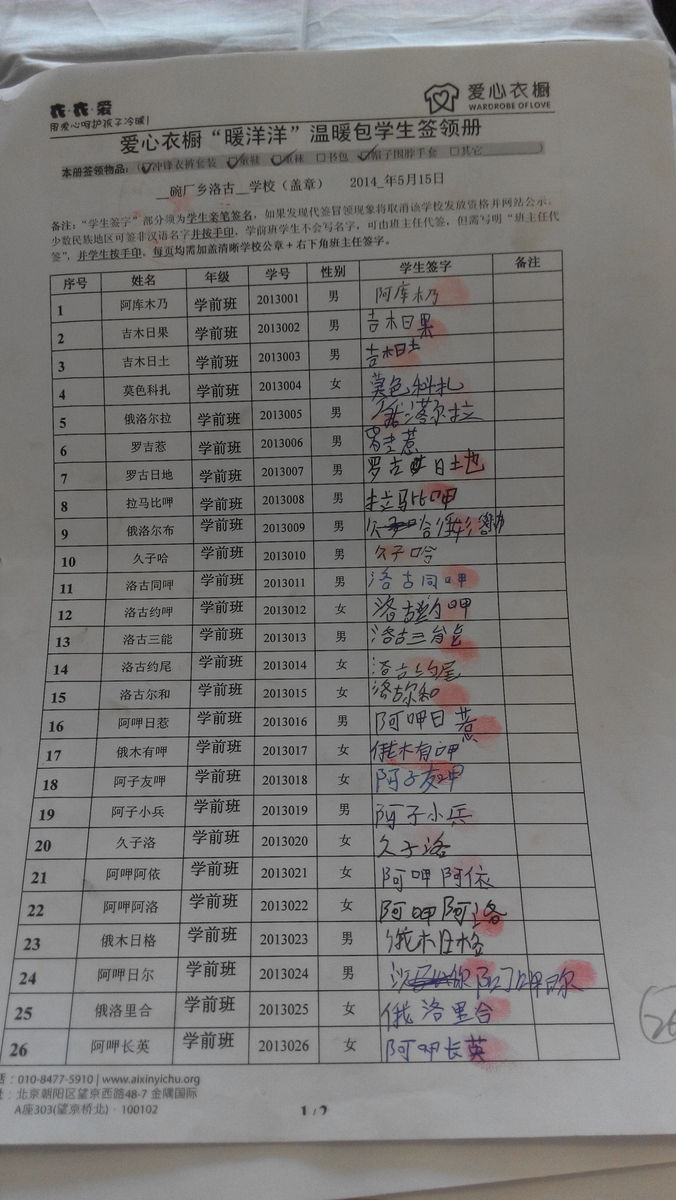 衣·衣·爱
用爱心呵护孩子冷暖!
爱心衣橱
WARDROBE OF LOVE
爱心衣橱“暖洋洋”温暖包学生签领册
本册签领物品:(☑冲锋衣裤套装 ☑童鞋 ☑童袜 □书包 ☑帽子围脖手套 □其它
碗厂乡洛古__学校(盖章) 2014_年5月15日
备注:“学生签字”部分须为学生亲笔签名,如果发现代签冒领现象将取消该学校发放资格并网站公示。
少数民族地区可签非汉语名字并按手印,学前班学生不会写名字,可由班主任代签,但需写明“班主任代
签”,并学生按手印。每页均需加盖清晰学校公章+右下角班主任签字。
序号 姓名 年级 学号 性别 学生签字 备注
1 阿库木乃 学前班 2013001 男 阿库木乃
2 吉木日果 学前班 2013002 男 吉木日果
3 吉木日土 学前班 2013003 男 吉木日土
4 莫色科扎 学前班 2013004 女 莫色科扎
5 俄洛尔拉 学前班 2013005 男 俄洛尔拉
6 罗吉惹 学前班 2013006 男 罗吉惹
7 罗古日地 学前班 2013007 男 罗古日地
8 拉马比呷 学前班 2013008 男 拉马比呷
9 俄洛尔布 学前班 2013009 男
10 久子哈 学前班 2013010 男 久子哈
11 洛古同呷 学前班 2013011 男 洛古同呷
12 洛古约呷 学前班 2013012 女 洛古约呷
13 洛古三能 学前班 2013013 男 洛古三能
14 洛古约尾 学前班 2013014 女 洛古约尾
15 洛古尔和 学前班 2013015 女 洛古尔和
16 阿呷日惹 学前班 2013016 男 阿呷日惹
17 俄木有呷 学前班 2013017 女 俄木有呷
18 阿子友呷 学前班 2013018 女 阿子友呷
19 阿子小兵 学前班 2013019 男 阿子小兵
20 久子洛 学前班 2013020 女 久子洛
21 阿呷阿依 学前班 2013021 女 阿呷阿依
22 阿呷阿洛 学前班 2013022 女 阿呷阿洛
23 俄木日格 学前班 2013023 男 俄木日格
24 阿呷日尔 学前班 2013024 男 阿呷日尔
25 俄洛里合 学前班 2013025 女 俄洛里合
26 阿呷长英 学前班 2013026 女 阿呷长英
: 010-8477-5910 | www.aixinyichu.org
: 北京朝阳区望京西路48-7 金隅国际
A座303(望京桥北) · 100102
1/2